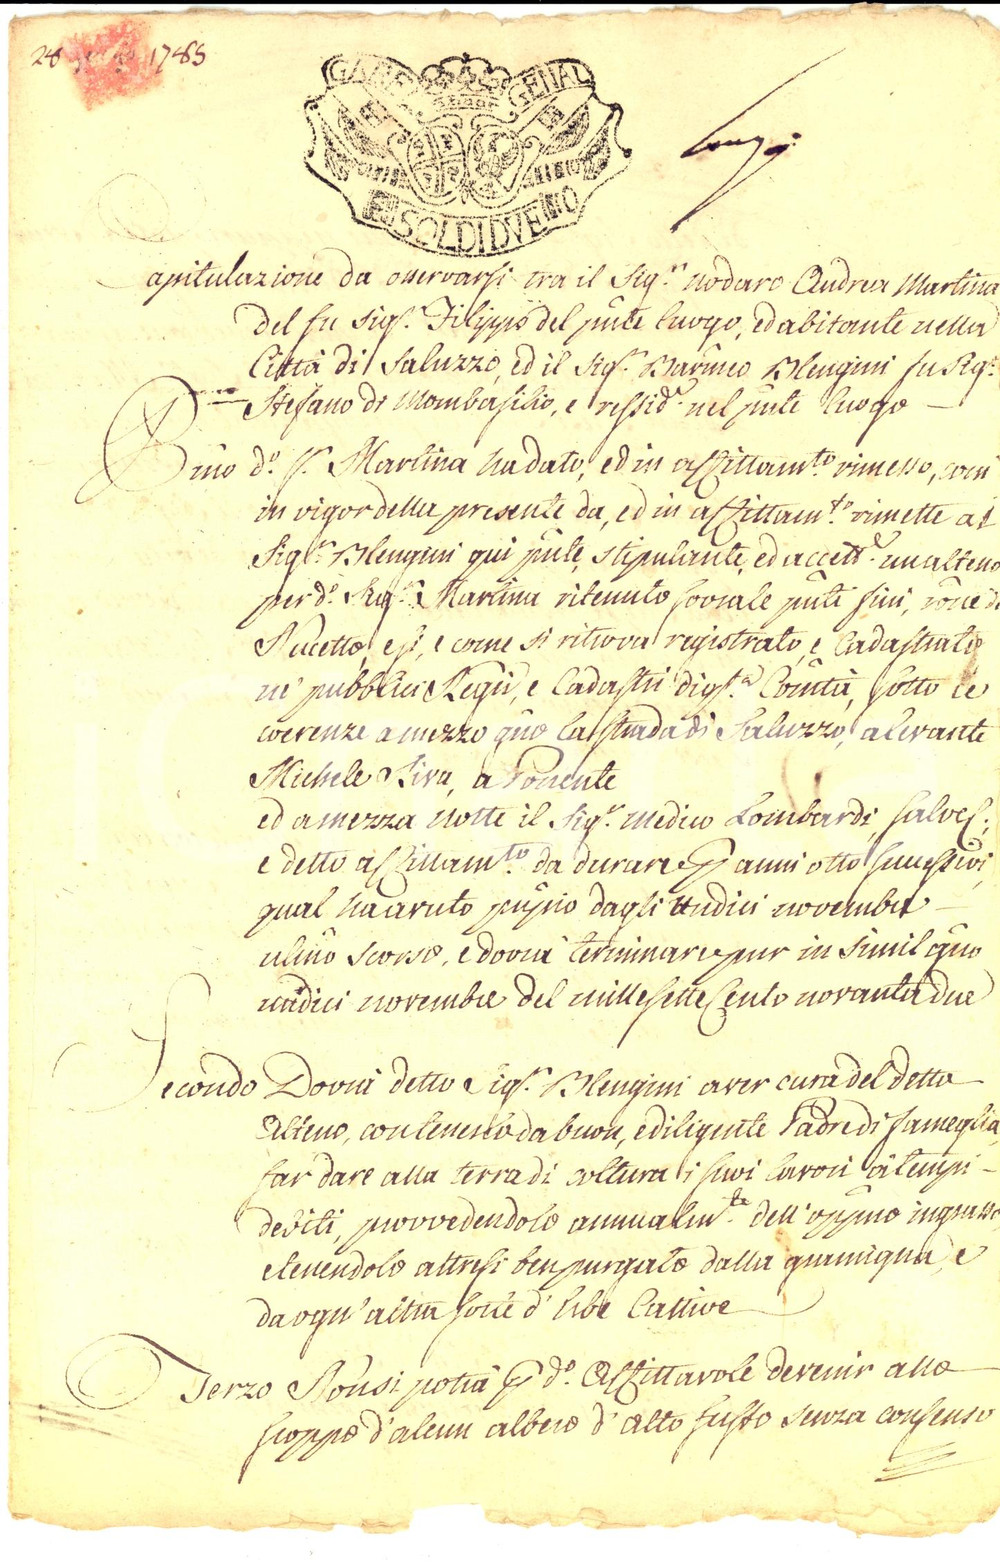 28 1785
GAB. GENAL
SOLDI DVE
Capitulazione da osservarsi tra il Sig.r nodaro Andrea Martina
del fu Sig.r Filippo del pnte luogo, ed abitante nella
Città di Saluzzo, ed il Sig.r Blengini fu Sig.r
Stefano di Mombasilio, e ressid.e nel pnte luogo
Primo d.o Sr. Martina ha dato, ed in affittam.to rimesso, come
in vigor della presente da, ed in affittam.to rimette al
Sig.r Blengini qui pnte, stipulante, ed accett.e un alteno
per d.o Sig.r Martina ritenuto sovra le pnti fini, reg.e di
e come si ritrova registrato, e Cadastrato
ne' pubblici Regii, e Cadastri di q.sta Comtà, sotto le
coerenze a mezzo gno la strada di Saluzzo, a levante
Michele Riva, a Ponente
ed a mezza notte il Sig.r medico Lombardi, salve
e detto affittam.to da durare p anni otto successivi,
qual ha avuto pnpio dagli undici novembre
ulmo scorso, e dovrà terminare pur in simil gno
undici novembre del mille sette Cento novanta due
Secondo Dovrà detto Sig.r Blengini aver cura del detto
Alteno, con tenerlo da buon, e diligente Padre di fameglia,
far dare alla terra di coltura i suoi lavori a' tempi
debiti, provvedendolo annualm.te dell' oppmo ingrasso
e tenendolo altresi ben purgato dalla gramigna, e
da ogn' altra sorte d' Erbe Cattive
Terzo Non si potrà p d.o Affittavole devenir allo
scoppo d' alcun albero d' alto fusto senza consenso